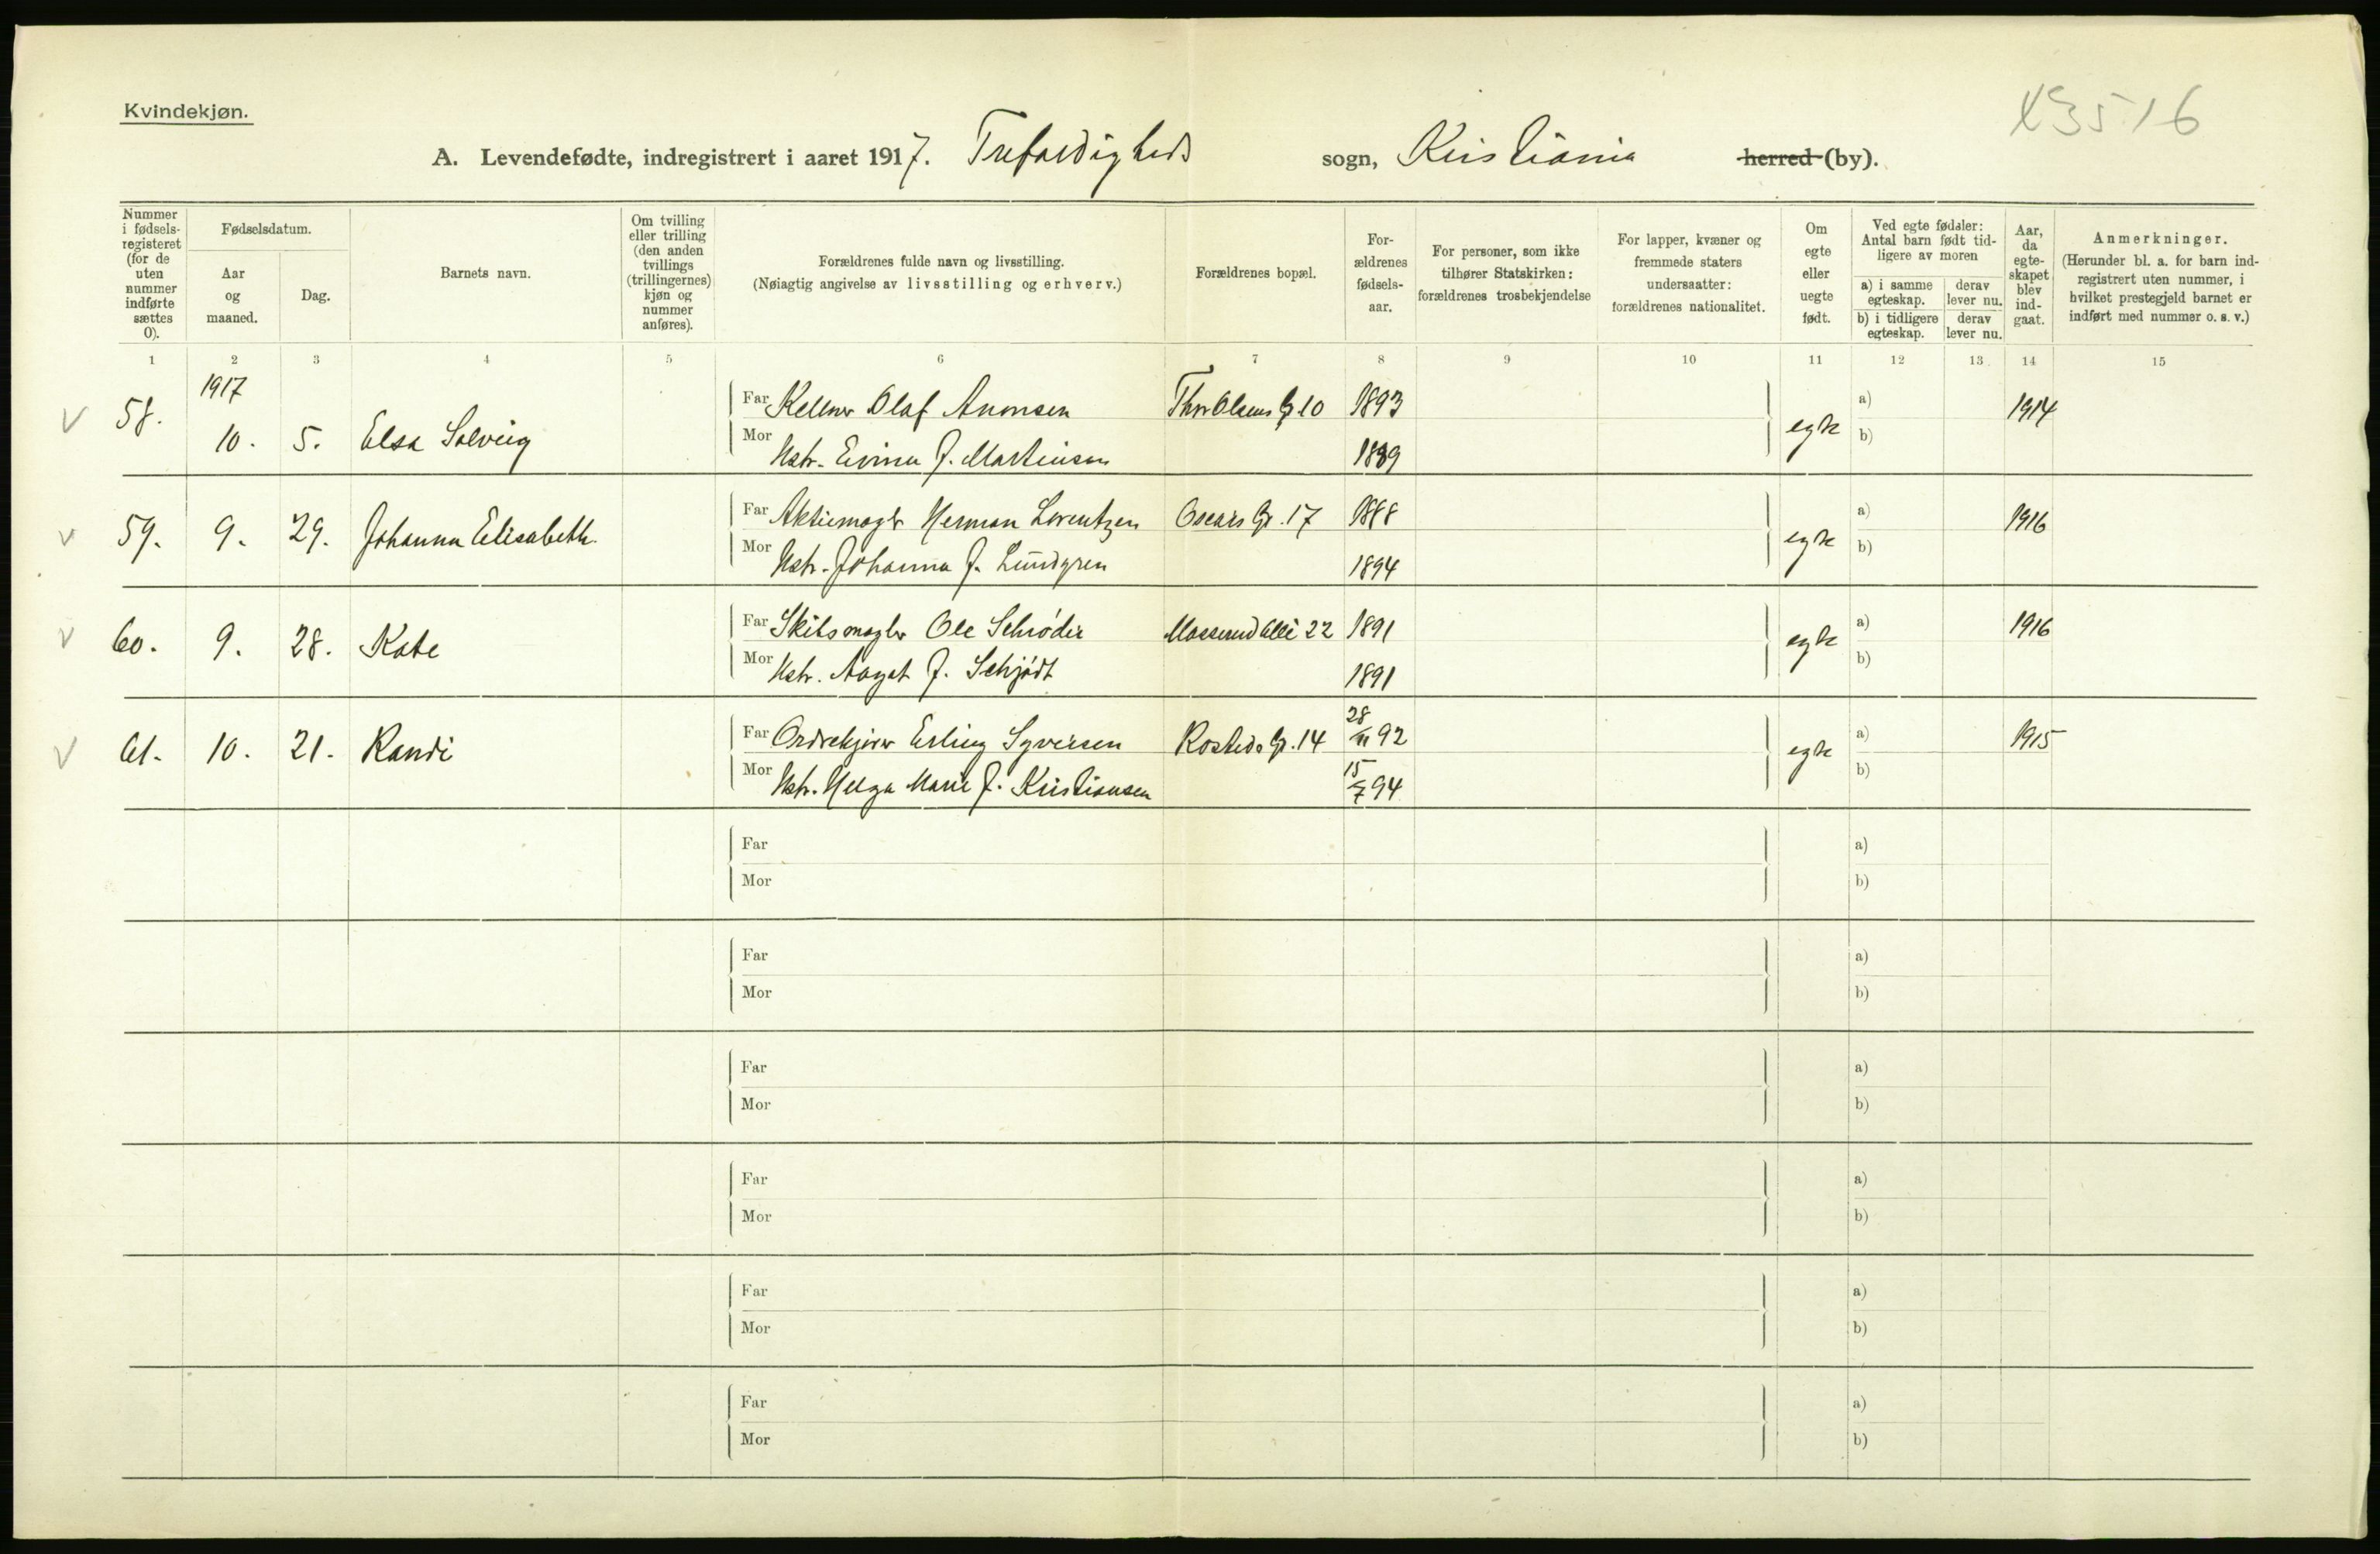 Kvindekjøn.
A. Levendefødte, indregistrert i aaret 1917. Trefoldigheds sogn, Kristiania herred (by).
Nummer i fødselsregisteret (for de uten nummer indførte sættes 0).
Fødselsdatum.
Aar og maaned.
Dag.
Barnets navn.
Om tvilling eller trilling (den anden tvillings (trillingernes) kjøn og nummer anføres).
Forældrenes fulde navn og livsstilling.
(Nøiagtig angivelse av livsstilling og erhverv.)
Forældrenes bopæl.
Forældrenes fødselsaar.
For personer, som ikke tilhører Statskirken: forældrenes trosbekjendelse
For lapper, kvæner og fremmede staters undersaatter: forældrenes nationalitet.
Om egte eller uegte født.
Ved egte fødsler: Antal barn født tidligere av moren
a) i samme egteskap.
derav lever nu.
b) i tidligere egteskap.
derav lever nu.
Aar, da egteskapet blev indgaat.
Anmerkninger.
(Herunder bl. a. for barn indregistrert uten nummer, i hvilket prestegjeld barnet er indført med nummer o. s. v.)
1 2 3 4 5 6 7 8 9 10 11 12 13 14 15
1917
58. 10. 5. Elsa Solveig Far Kellner Olaf Amonsen Thv Olsens G 10 1893 egte a) 1914
Mor Hstr. f. Martinsen 1889 b)
59. 9. 29. Johanna Elisabeth. Far Aktiemægler Herman Lorentzen Oscars G. 17 1888 egte a) 1916
Mor Hstr. Johanna f. Lundgren 1894 b)
60. 9. 28. Kate Far Skibsmægler Ole Schrøder 22 1891 egte a) 1916
Mor Hstr. Aagot f. Schjødt 1891 b)
61. 10. 21. Randi Far Erling Syversen Rosteds G. 14 28/11 92 egte a) 1915
Mor Hstr. Helga Marie f. Kristiansen 15/7 94 b)
Far a)
Mor b)
Far a)
Mor b)
Far a)
Mor b)
Far a)
Mor b)
Far a)
Mor b)
Far a)
Mor b)